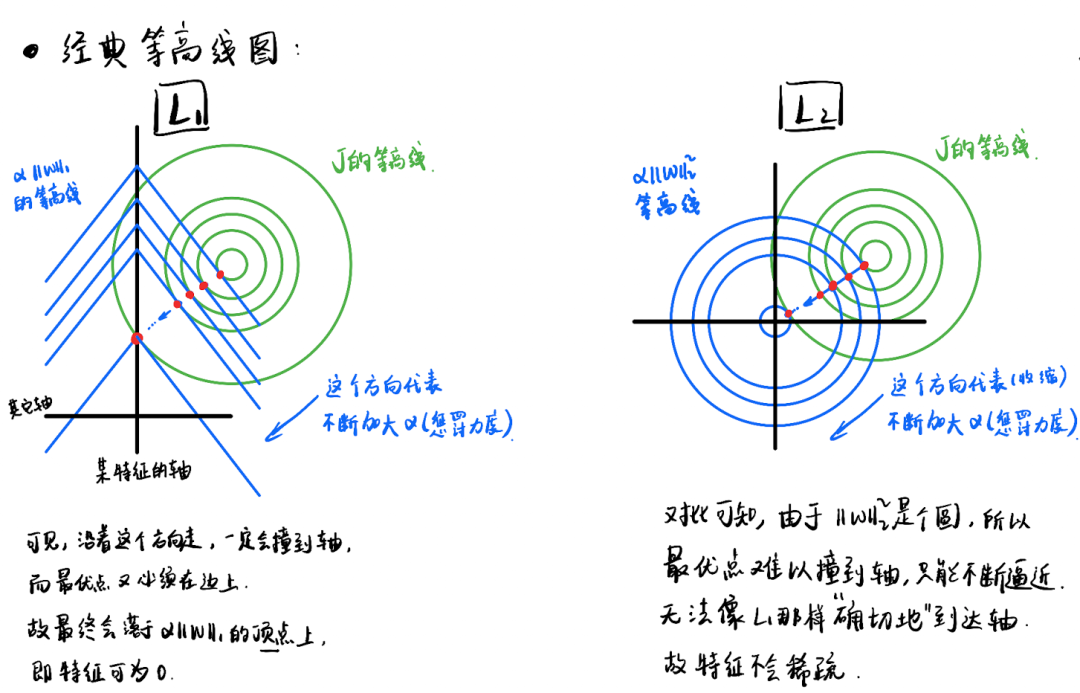 • 经典等高线图：
L₁
α||W||₁
的等高线
J的等高线.
其它轴
某特征的轴
这个方向代表
不断加大α(惩罚力度).
可见,沿着这个方向走,一定会撞到轴,
而最优点又必须在边上.
故最终会落于α||W||₁的顶点上,
即特征可为0.
L₂
α||W||₂²
等高线
J的等高线.
这个方向代表(收缩)
不断加大α(惩罚力度).
对比可知,由于||W||₂²是个圆,所以
最优点难以撞到轴,只能不断逼近.
无法像L₁那样"确切地"到达轴.
故特征不会稀疏.